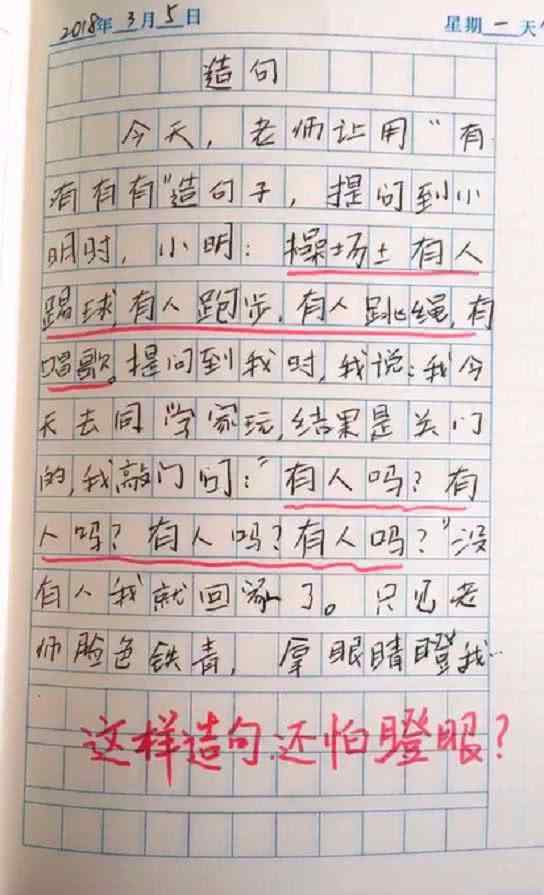 2018年3月5日 星期一 天
造句
今天,老师让用“有
有有有”造句子,提问到小
明时,小明:操场上有人
踢球,有人跑步,有人跳绳,有
唱歌。提问到我时,我说:我今
天去同学家玩,结果是关门
的,我敲门问:“有人吗?有
人吗?有人吗?有人吗?”没
有人我就回家了。只见老
师脸色铁青,拿眼睛瞪我…
这样造句.还怕瞪眼?